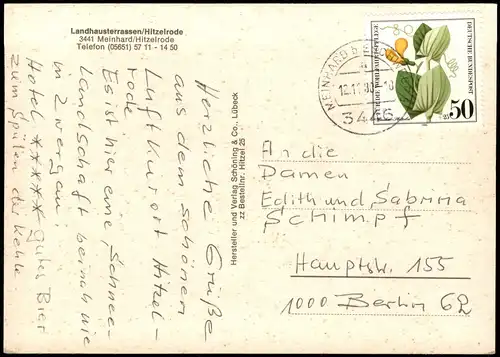 Landhausterrassen/Hitzelrode
3441 Meinhard/Hitzelrode
Telefon (05651) 57 11 - 14 50
Herzliche Grüße
aus dem schönen
Luftkurort Hitzel-
rode
Es ist hier eine Schnee-
Landschaft beinah wie
in Zwergau!
Hotel **** gutes Bier
zum Spülen der Kehle
Hersteller und Verlag Schöning & Co., Lübeck
zz Bestellnr. Hitzel 25
MEINHARD
12.11.80
3446
DEUTSCHE BUNDESPOST
50
An die
Damen
Edith und Sabrina
Schimpf
Hauptstr. 155
1000 Berlin 62